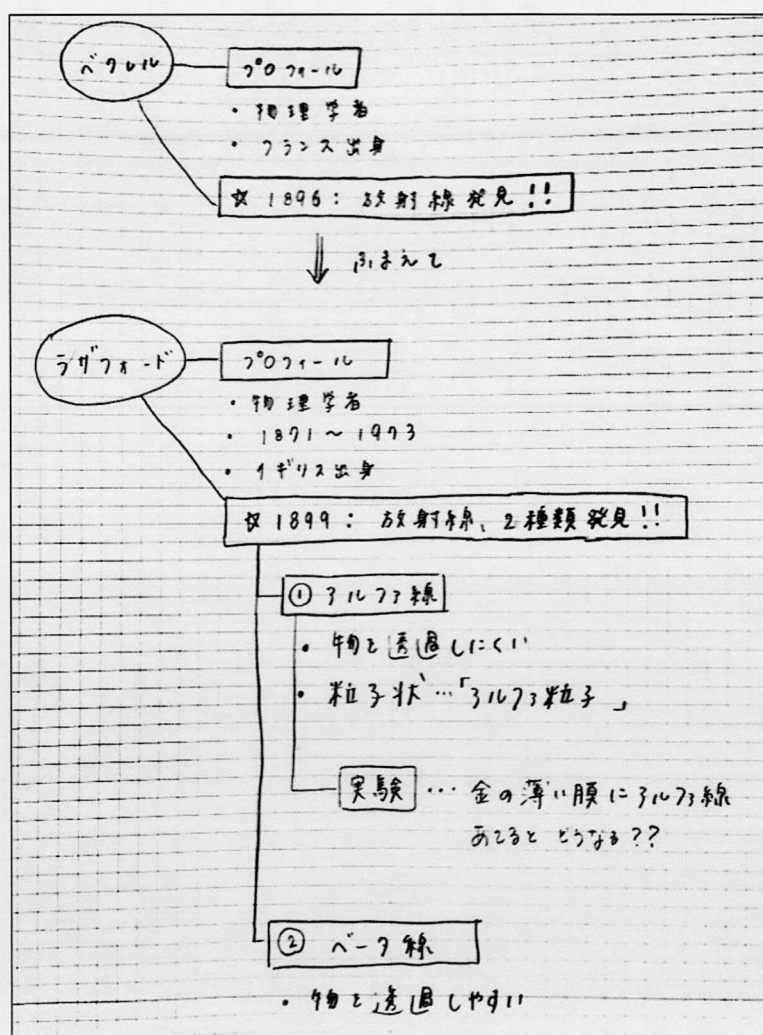 ベクレル
プロフィール
・物理学者
・フランス出身
☆1896：放射線発見!!
ふまえて
ラザフォード
プロフィール
・物理学者
・1871〜1973
・イギリス出身
☆1899：放射線、2種類発見!!
① アルファ線
・物を透過しにくい
・粒子状…「アルファ粒子」
実験…金の薄い膜にアルファ線
あてるとどうなる??
② ベータ線
・物を透過しやすい